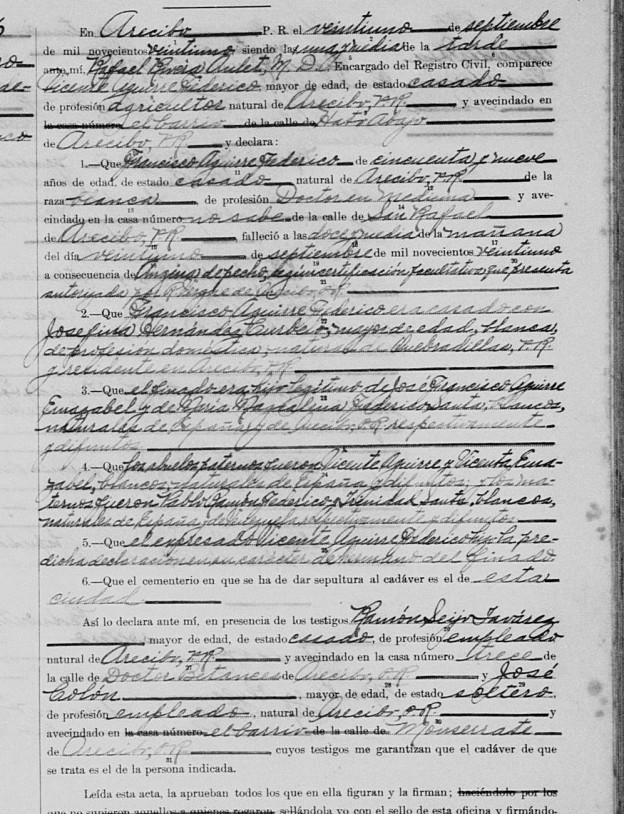 En Arecibo P. R. el veintiuno de septiembre
de mil novecientos veintiuno siendo la una y media de la tarde
ante mí, Rafael M. D. Encargado del Registro Civil, comparece
Vicente Aguirre Federico mayor de edad, de estado casado
de profesión agricultor natural de Arecibo, P.R. y avecindado en
la casa número el barrio de la calle de Hato Abajo
de Arecibo, P.R. y declara:
1.—Que Francisco Aguirre Federico de cincuenta y nueve
años de edad, de estado casado natural de Arecibo, P.R. de la
raza blanca de profesión Doctor en Medicina y ave-
cindado en la casa número no sabe de la calle de San Rafael
de Arecibo, P.R. falleció a las doce y media de la mañana
del día veintiuno de septiembre de mil novecientos veintiuno
a consecuencia de Angina de pecho, según certificación facultativa que presenta
autorizada por de Arecibo, P.R.
2.—Que Francisco Aguirre Federico era casado con
Josefina Hernández Curbelo, mayor de edad, blanca,
de profesión doméstica, natural de Quebradillas, P.R.
y residente en Arecibo, P.R.
3.—Que el finado era hijo legítimo de José Francisco Aguirre
y de María Magdalena Federico blancos,
naturales de España y de Arecibo, P.R. respectivamente
y difuntos
4.—Que los abuelos paternos fueron Vicente Aguirre y Vicenta
blancos, naturales de España y difuntos; y los ma-
ternos fueron Pablo Ramón Federico y Trinidad blancos,
naturales de España, de respectivamente y difuntos
5.—Que el expresado Vicente Aguirre Federico hizo la pre-
dicha declaración en su carácter de hermano del finado
6.—Que el cementerio en que se ha de dar sepultura al cadáver es el de esta
ciudad
Así lo declara ante mí, en presencia de los testigos Ramón Seijo Tavárez
, mayor de edad, de estado casado, de profesión empleado
natural de Arecibo, P.R. y avecindado en la casa número trece de
la calle de Doctor Betances de Arecibo, P.R. y José
Colón , mayor de edad, de estado soltero,
de profesión empleado, natural de Arecibo, P.R. y
avecindado en la casa número el barrio de la calle de Monserrate
de Arecibo, P.R. cuyos testigos me garantizan que el cadáver de que
se trata es el de la persona indicada.
Leída esta acta, la aprueban todos los que en ella figuran y la firman; haciéndolo por los
que no supieron aquellos a quienes rogaron, sellándola yo con el sello de esta oficina y firmándo-